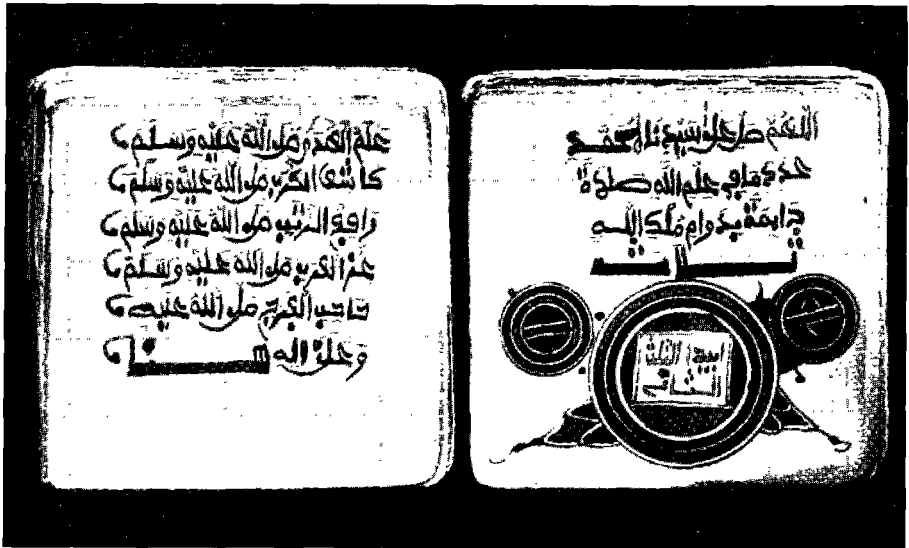 اللهم صل على سيدنا محمد
عدد ما في علم الله صلاة
دايمة بدوام ملك الله
الثلث
علم الهدى صلى الله عليه وسلم
كاشف الكرب صلى الله عليه وسلم
رافع الرتب صلى الله عليه وسلم
عز العرب صلى الله عليه وسلم
صاحب الفرج صلى الله عليه
وعلى اله